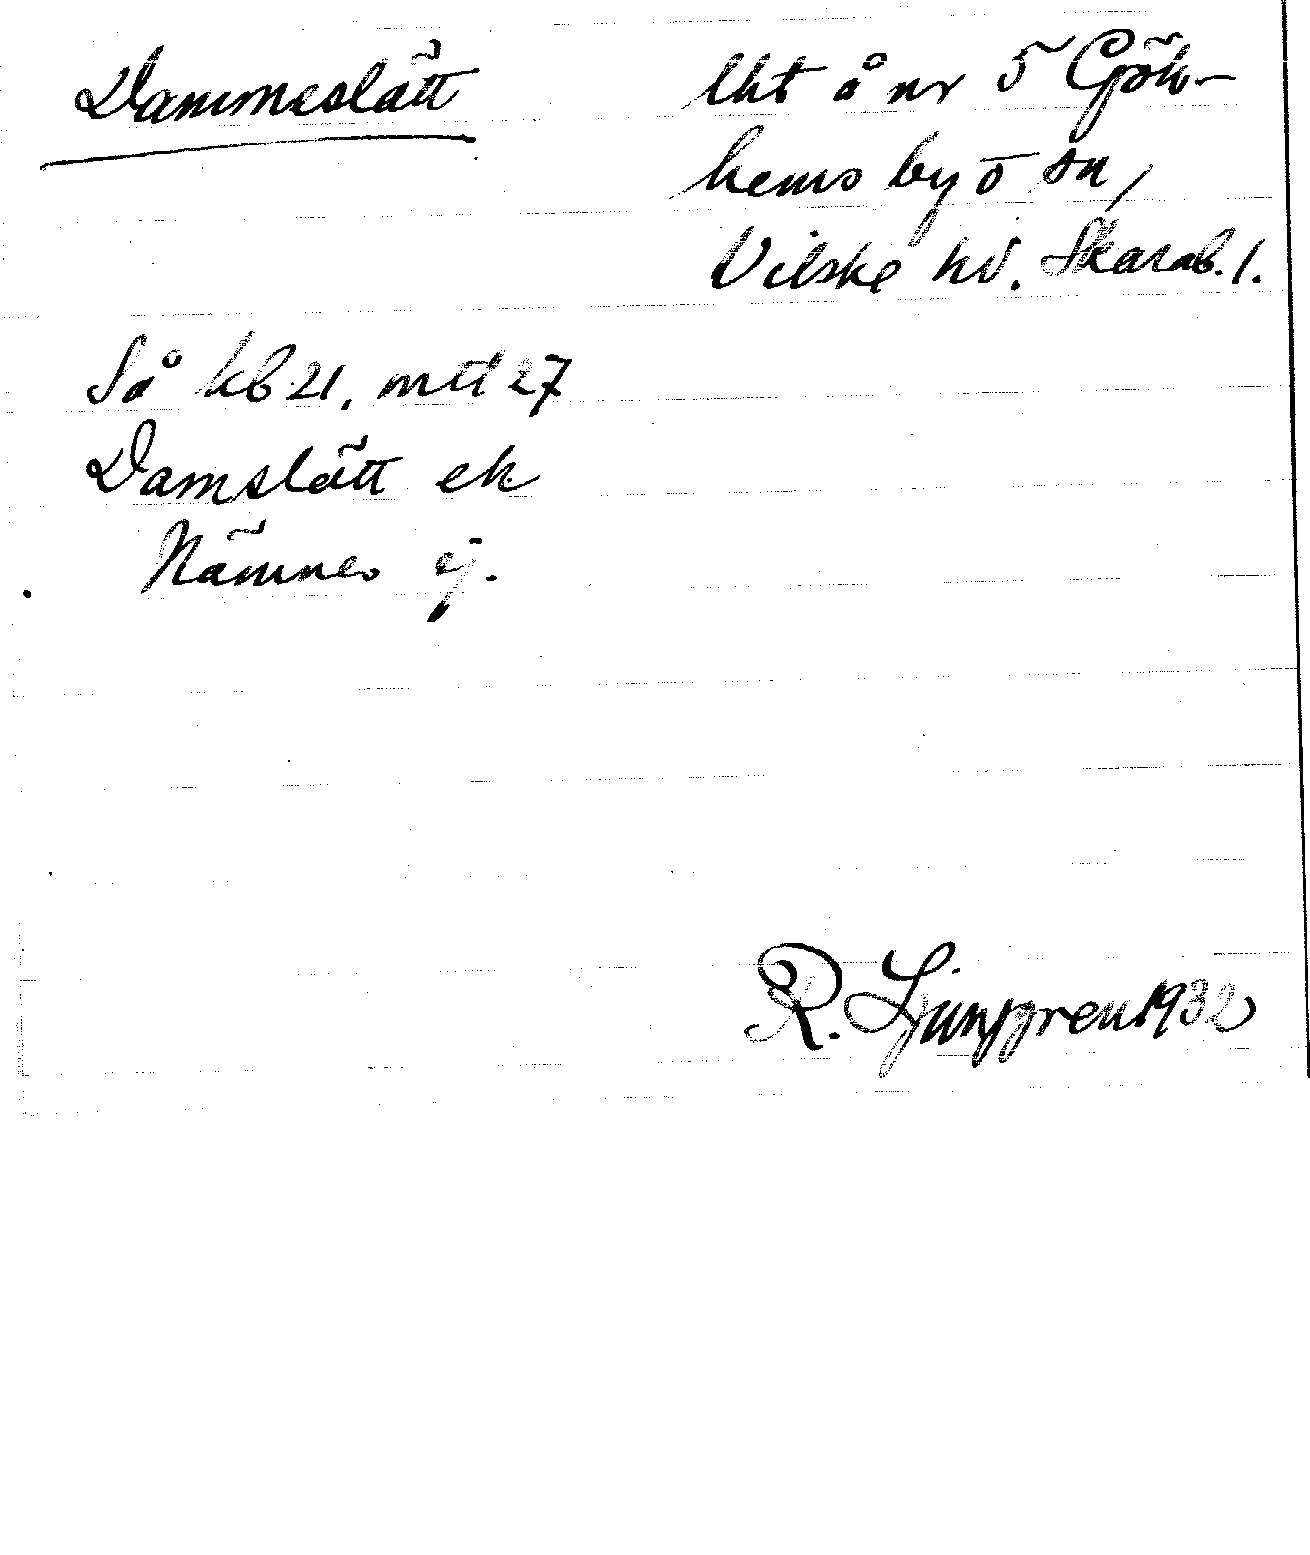 Dammeslätt
lht å nr 5 Göke-
hems by o sn,
Vilske hd. Skarab. l.
Så kb 21, mtl 27
Damslätt ek
Nämnes ej.
R. Ljunggren 1932